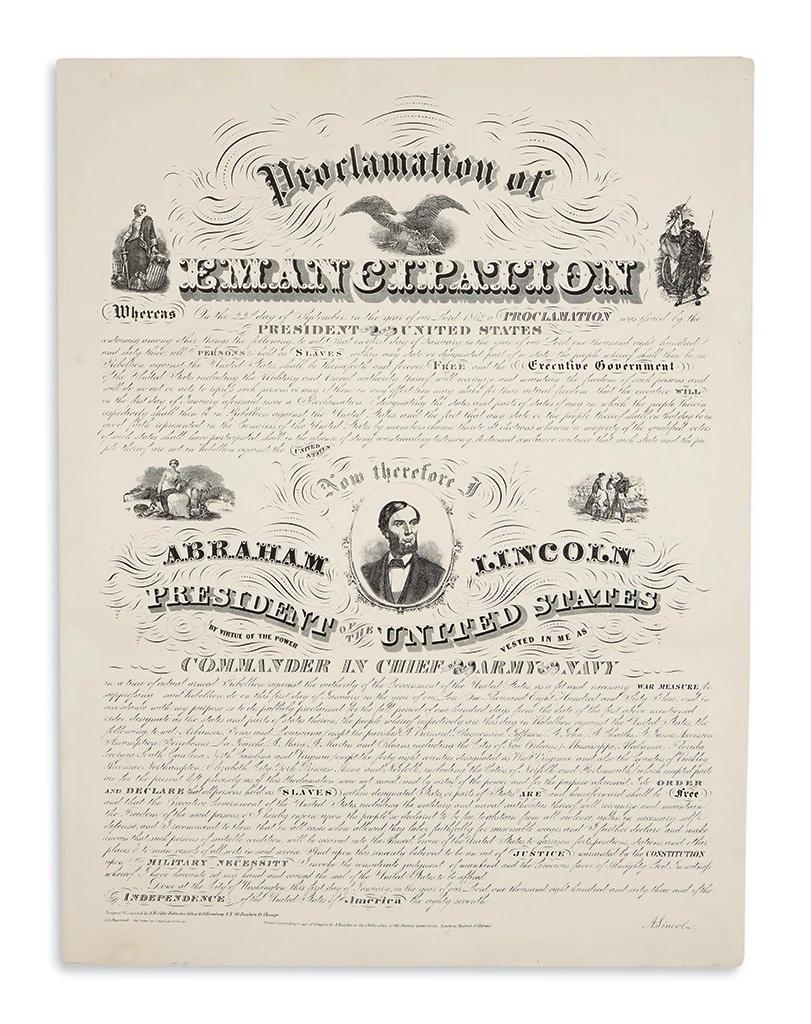 Proclamation of
EMANCIPATION
Whereas On the 22d day of September, in the year of our Lord 1862 a PROCLAMATION was issued by the
PRESIDENT UNITED STATES
containing among other things the following to wit: That on the first day of January in the year of our Lord one thousand eight hundred
and sixty three, all PERSONS held as SLAVES within any State or designated part of a state the people whereof shall then be in
Rebellion against the United States shall be thenceforth and forever FREE and the Executive Government
of the United States including the Military and naval authority thereof will recognize and maintain the freedom of such persons and
will do no act or acts to repress such persons or any of them in any efforts they may make for their actual freedom that the executive WILL
on the first day of January aforesaid issue a Proclamation designating the States and parts of States if any in which the people therein
respectively shall then be in Rebellion against the United States and the fact that any state or the people thereof shall on that day be in
good faith represented in the Congress of the United States by members chosen thereto at elections wherein a majority of the qualified voters
of such states shall have participated shall in the absence of strong countervailing testimony be deemed conclusive evidence that such State and the peo-
ple thereof are not in Rebellion against the UNITED STATES
Now therefore I
ABRAHAM LINCOLN
PRESIDENT OF THE UNITED STATES
BY VIRTUE OF THE POWER VESTED IN ME AS
COMMANDER IN CHIEF ARMY NAVY
in a time of actual armed Rebellion against the authority of the Government of the United States, as a fit and necessary WAR MEASURE for
suppressing said Rebellion, do on this first day of January in the year of our Lord One Thousand Eight Hundred and Sixty Three, and in
accordance with my purpose so to do, publicly proclaimed for the full period of one hundred days from the date of the first above mentioned
order, designate as the states and parts of States therein the people whereof respectively are this day in Rebellion against the United States, the
following to wit: Arkansas, Texas and Louisiana (except the parishes of St Bernard, Plaquemine, Jefferson, St John, St Charles, St James, Ascension,
Assumption, Terrebonne, La Fourche, St Mary, St Martin and Orleans, including the City of New Orleans,) Mississippi, Alabama, Florida,
Georgia, South Carolina, North Carolina and Virginia, (except the forty eight counties designated as West Virginia, and also the Counties of Berkley,
Accomac, Northampton, Elizabeth City, York, Princess Anne and Norfolk, including the Cities of Norfolk and Portsmouth,) which excepted parts
are for the present left precisely as if this Proclamation were not issued; and by virtue of the power and for the purpose aforesaid I do ORDER
AND DECLARE that all persons held as SLAVES within designated States or parts of States ARE and henceforward shall be Free
and that the Executive Government of the United States, including the military and naval authorities thereof will recognize and maintain
the Freedom of the said persons & I hereby enjoin upon the people so declared to be free, to abstain from all violence, unless in necessary self-
defense, and I recommend to them that in all cases where allowed they labor faithfully for reasonable wages, and I further declare and make
known that such persons of suitable condition will be received into the Armed Service of the United States to garrison fortifications, stations and other
places & to man vessels of all sorts in said service. And upon this sincerely believed to be an act of JUSTICE warranted by the CONSTITUTION
upon MILITARY NECESSITY I invoke the considerate judgment of mankind and the Gracious favor of Almighty God. In witness
whereof I have hereunto set my hand and caused the seal of the United States to be affixed
Done at the City of Washington, this first day of January, in the year of our Lord one thousand eight hundred and sixty three and of the
INDEPENDENCE of the United States of America the eighty seventh
A. Lincoln